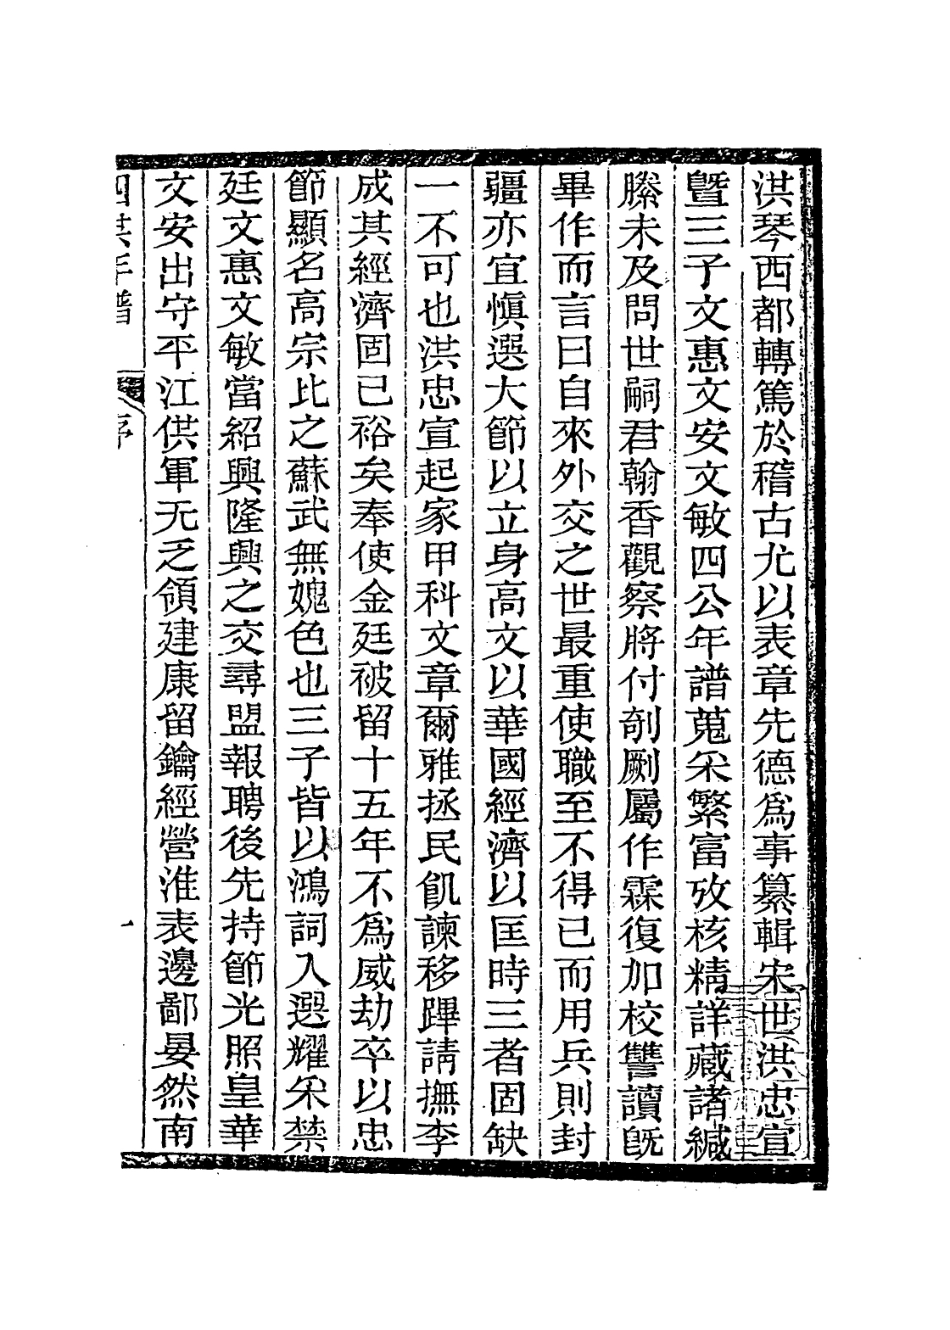 洪琴西都轉篤於稽古尤以表章先德爲事纂輯宋世洪忠宣
曁三子文惠文安文敏四公年譜蒐采繁富攷核精詳藏諸緘
縢未及問世嗣君翰香觀察將付剞劂屬作霖復加校讐讀旣
畢作而言曰自來外交之世最重使職至不得已而用兵則封
疆亦宜愼選大節以立身高文以華國經濟以匡時三者固缺
一不可也洪忠宣起家甲科文章爾雅拯民飢諫移蹕請撫李
成其經濟固已裕矣奉使金廷被留十五年不爲威劫卒以忠
節顯名高宗比之蘇武無媿色也三子皆以鴻詞入選耀采禁
廷文惠文敏當紹興隆興之交尋盟報聘後先持節光照皇華
文安出守平江供軍无乏領建康留鑰經營淮表邊鄙晏然南
四洪年譜 序 一